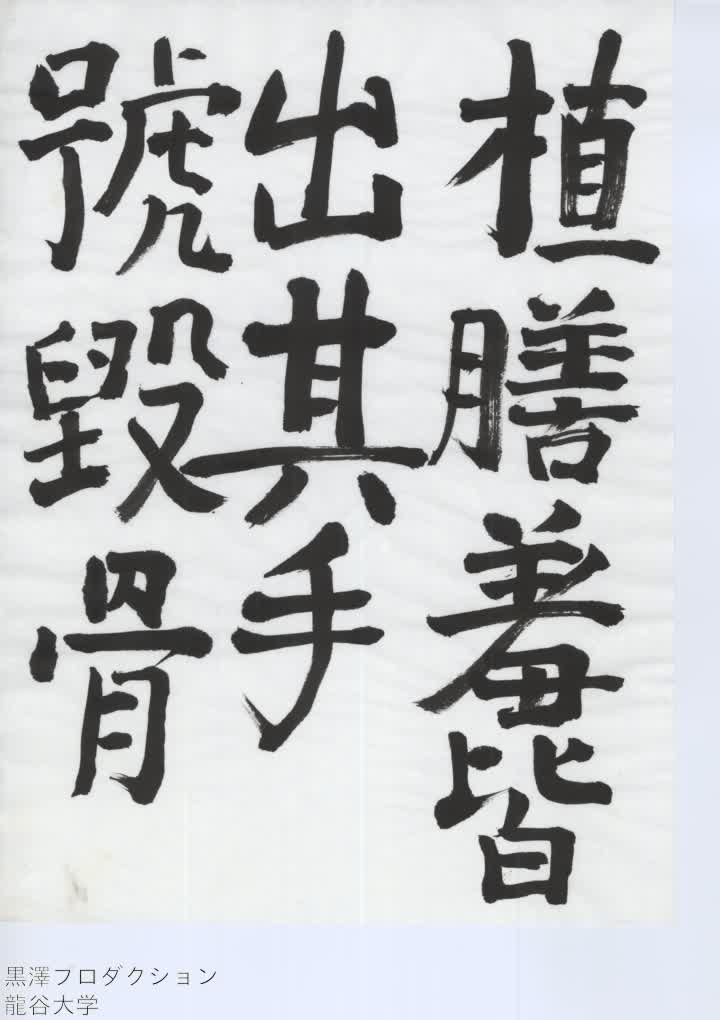 植膳羞皆
出其手
號毀骨
黒澤プロダクション
龍谷大学